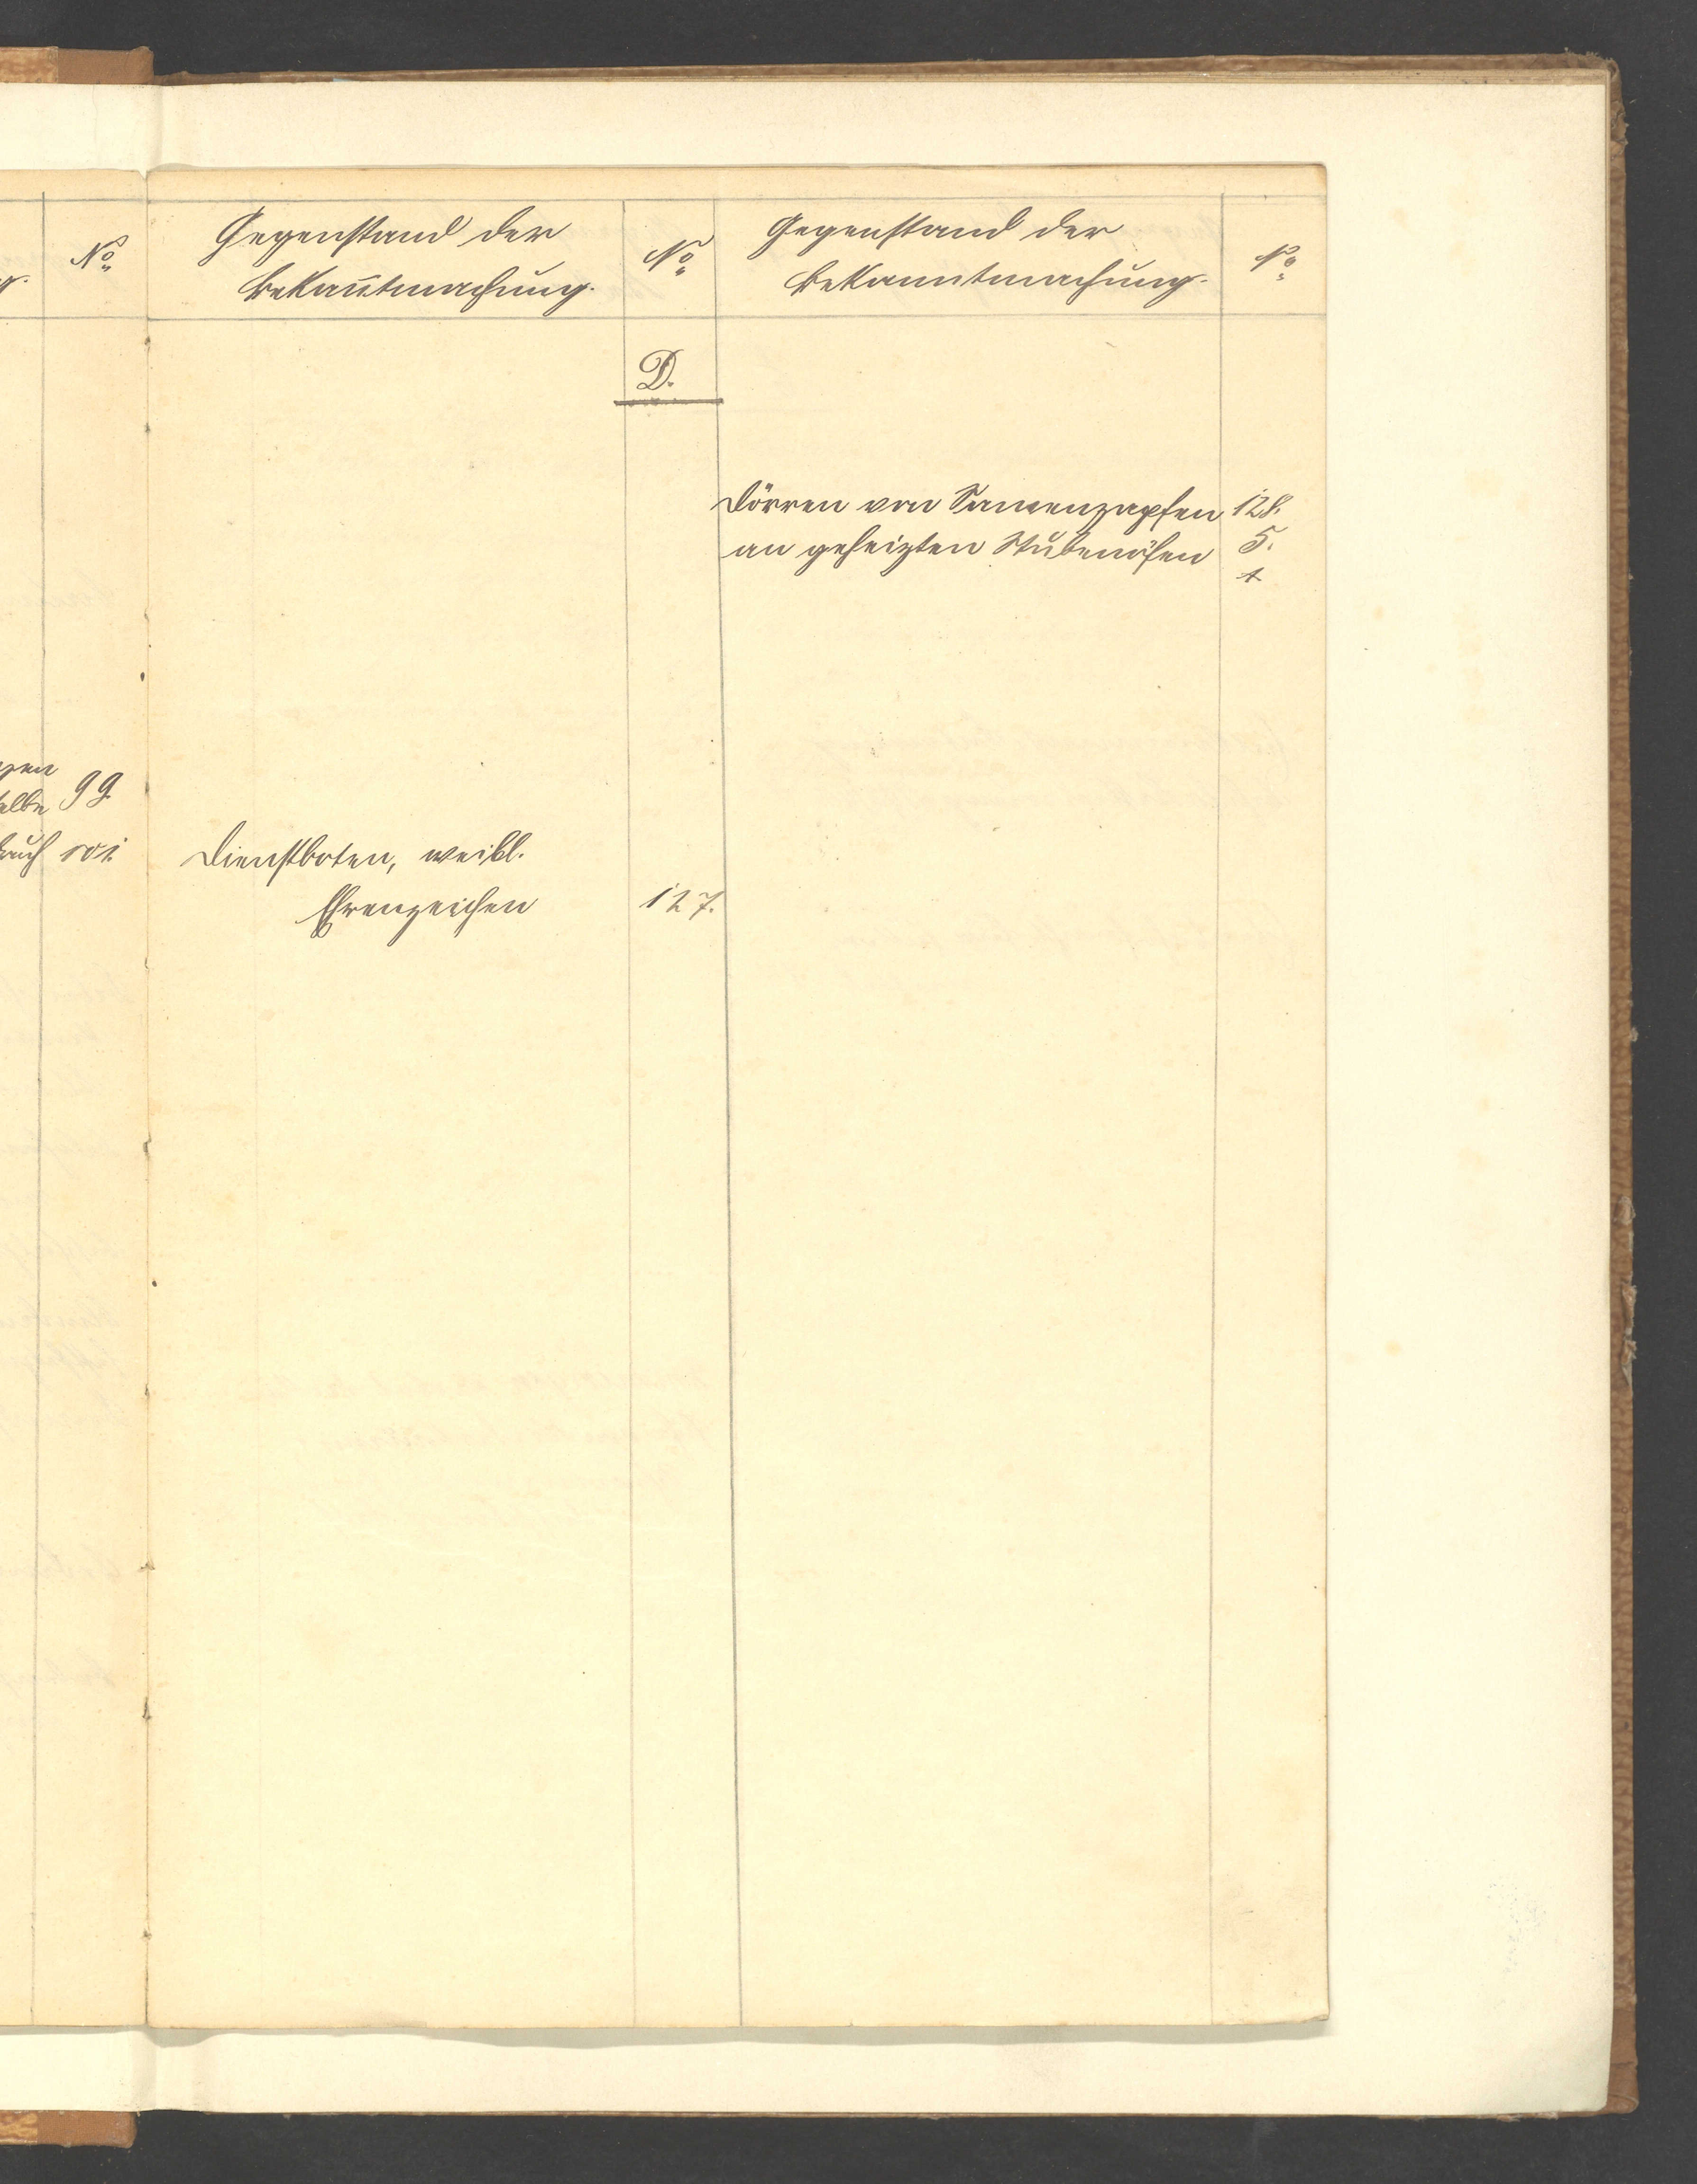 No
Gegenstand der
Bekan̄tmachung.
No
Gegenstand der
Bekanntmachung.
No
D.
Dörren von Samenzapfen 128.
an geheizten Stubenöfen 5.
99.
101.
Dienstboten, weibl.
Ehrenzeichen 127.